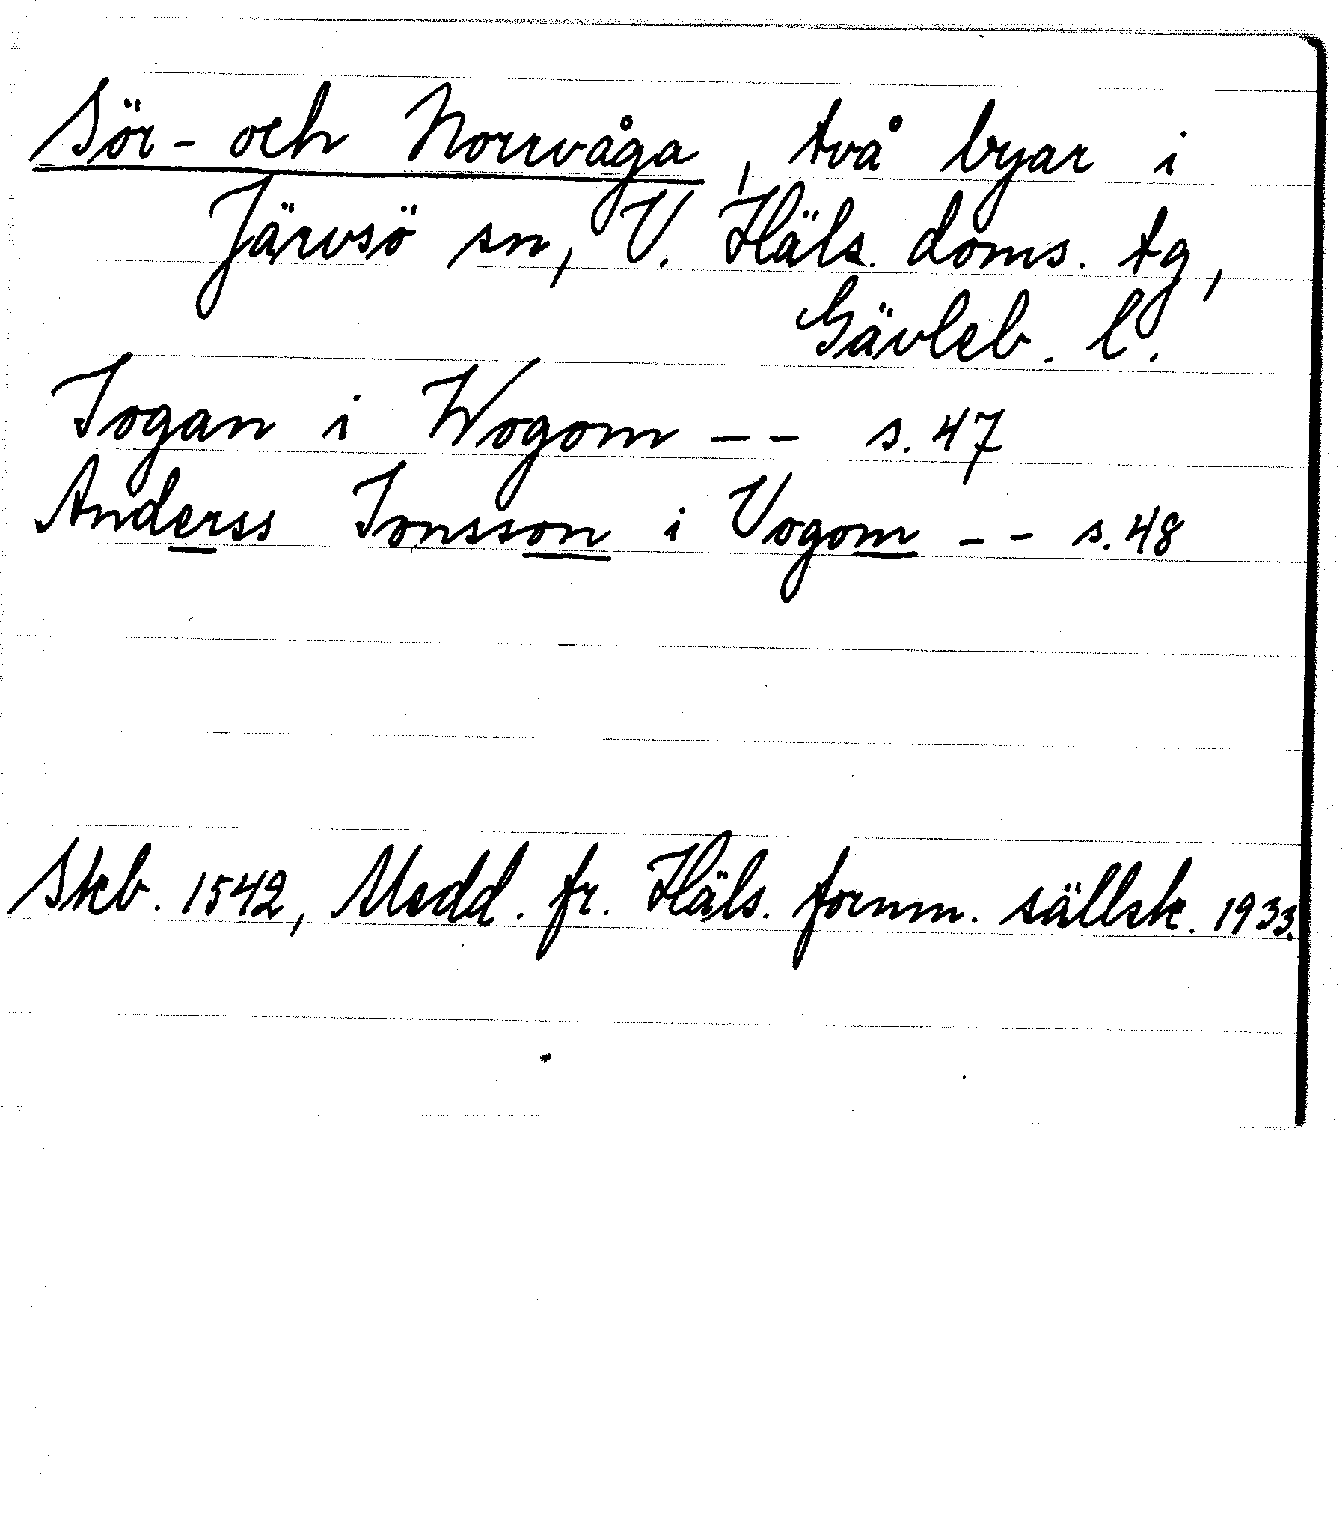 Sör- och Norrvåga, två byar i
Järvsö sn, V. Häls. doms. tg,
Gävleb. l.
Jogan i Wogom -- s. 47
Anderss Jonsson i Vogom -- s. 48
Skb. 1542, Medd. fr. Häls. fornm. sällsk. 1933.